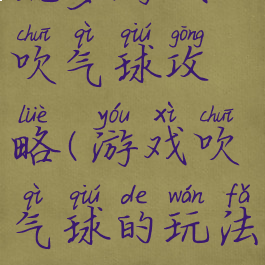 chuī qì qiú gōng
吹气球攻
lüè yóu xì chuī
略(游戏吹
qì qiú de wán fǎ
气球的玩法